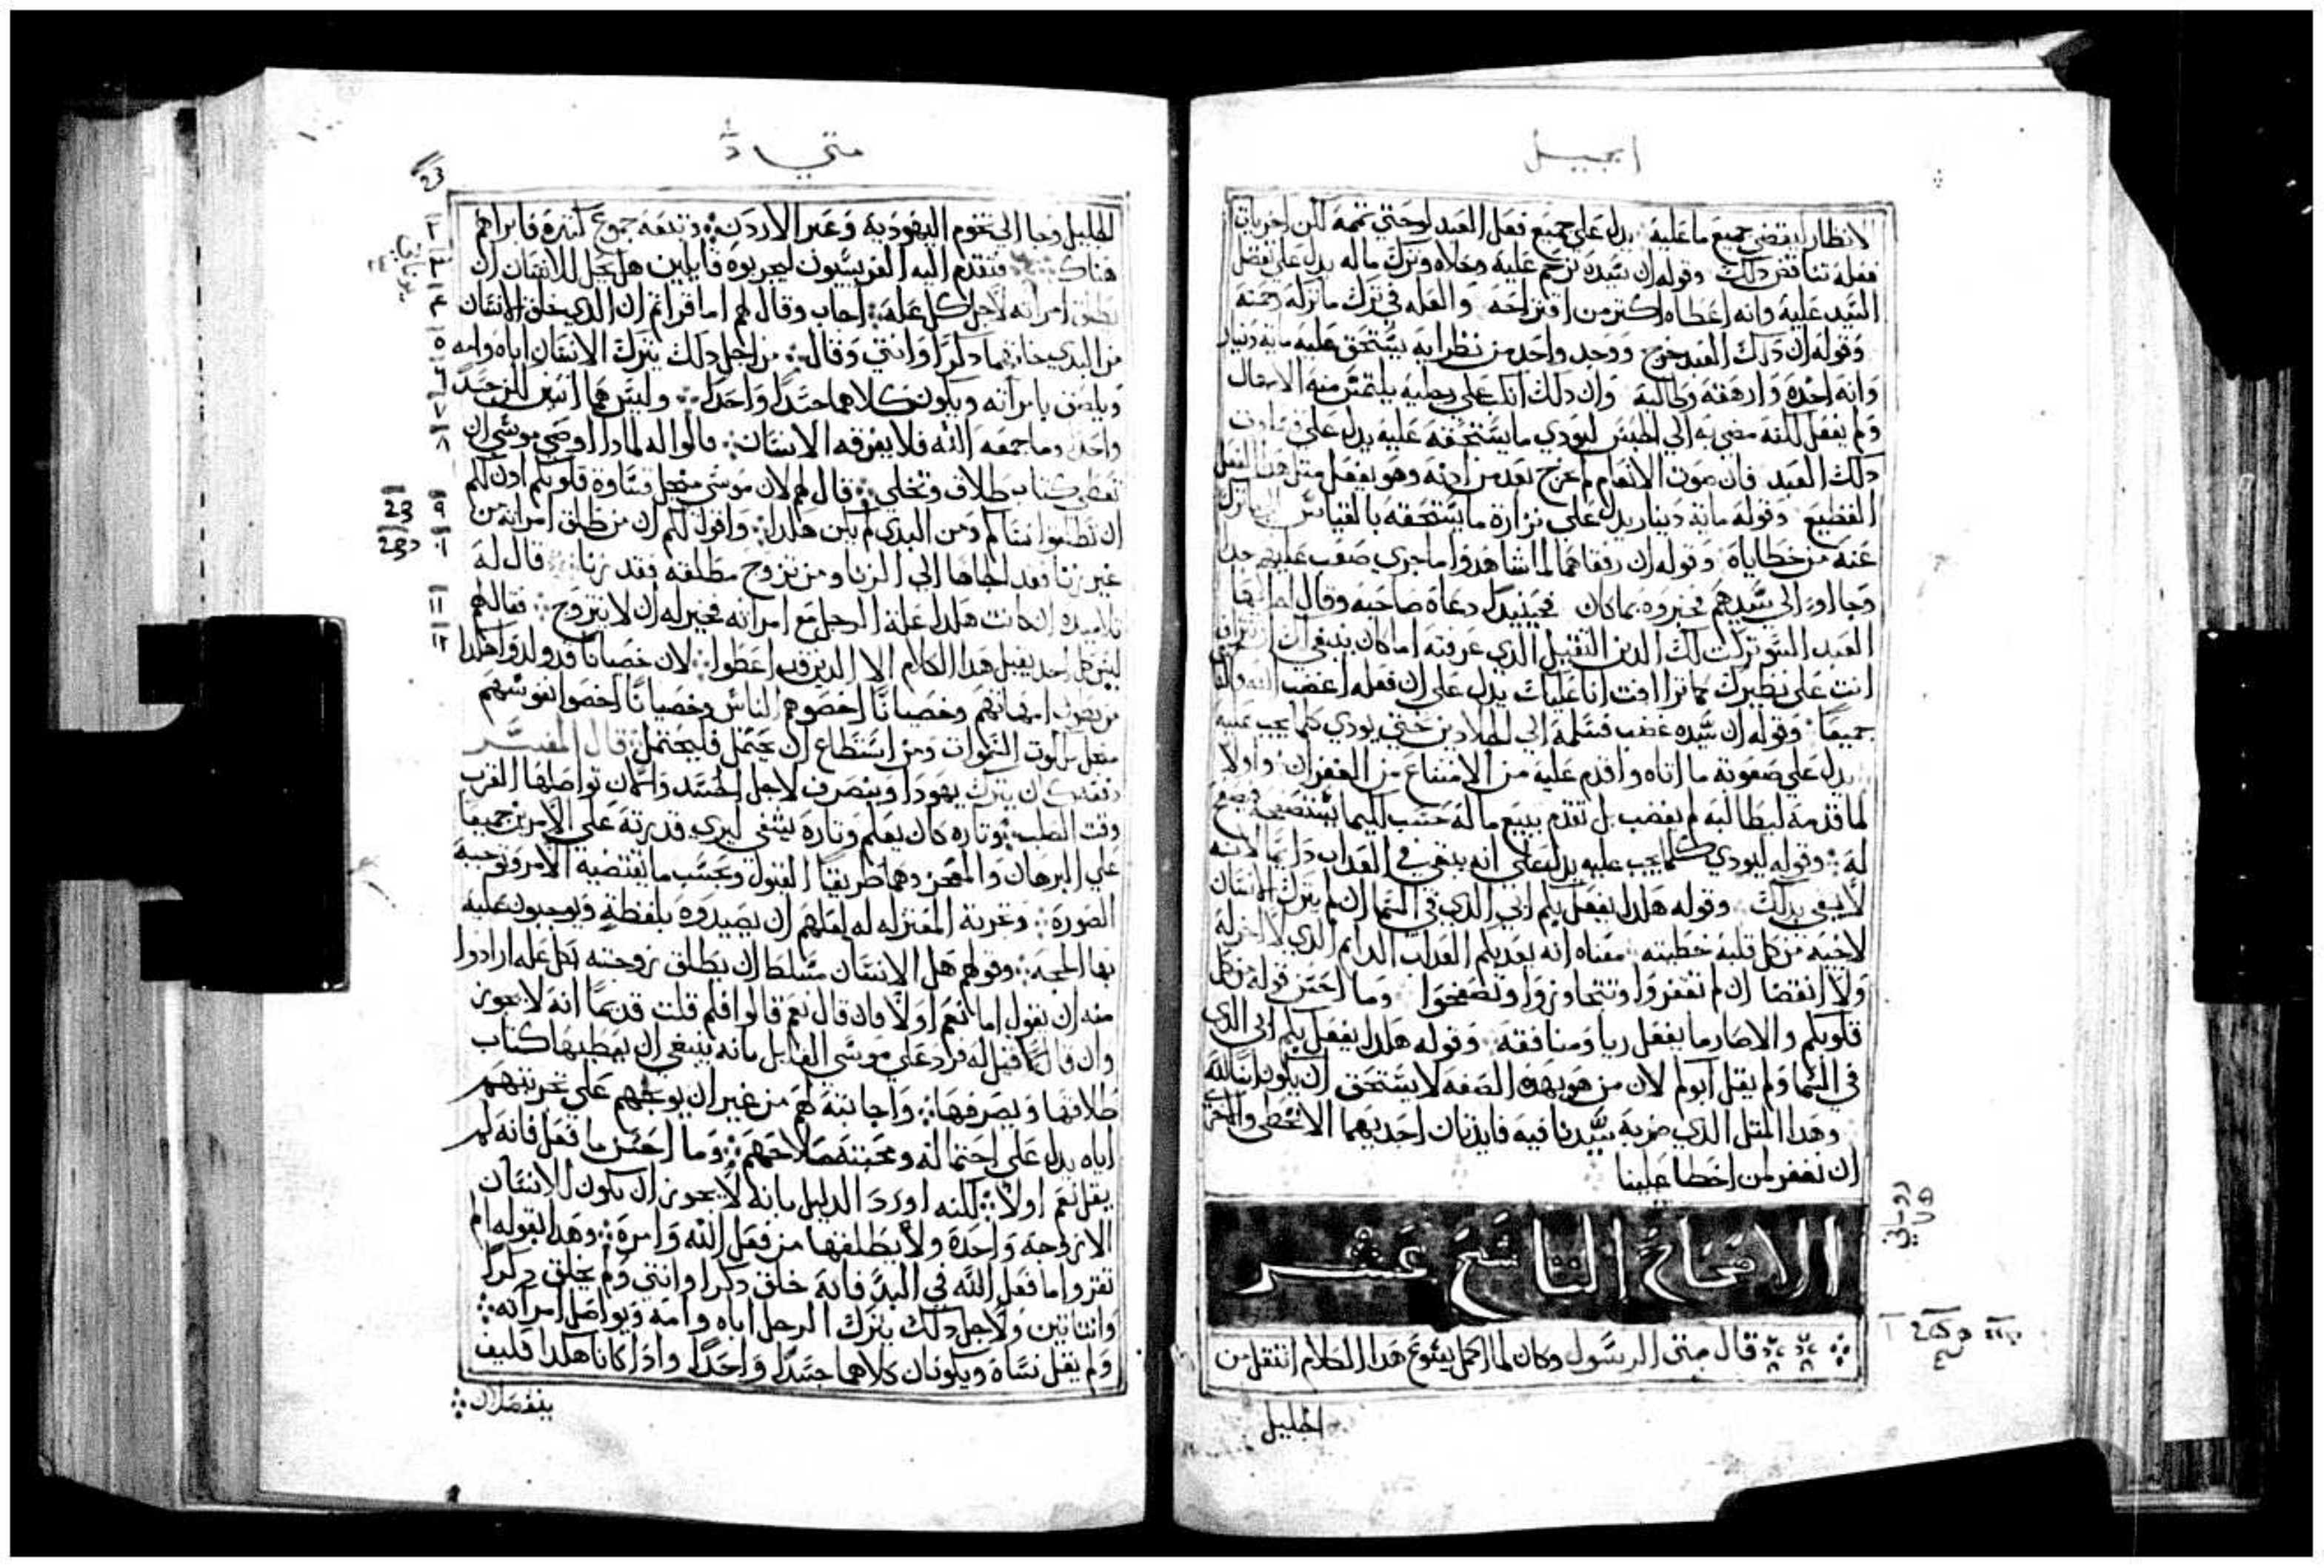 انجيل
لانظار ليقضي جميع ما عليه يدل علي جميع فعل العبد لوحتي تممه لكن اخر باني
ففعله تناقض ذلك وقوله ان سيده ترحم عليه وخلاه وترك ماله يدل علي تفضل
السيد عليه وانه اعطاه اكتر من اقتراحه والعله في ترك ما تركه رحمته
وقوله ان دلك العبد خرج ووجد واحد من نظرايه يستحق عليه مايه دينار
وانه اخده وارهقه وطالبه وان دلك انكب علي رجليه يلتمس منه الامهال
ولم يفعل لكنه مضي به الي الحبس ليودي ما يستحقه عليه يدل علي
دلك العبد فان صوت الانعام لم يخرج بعد من ادنه وهو يفعل متل هدا الفعل
الفظيع وقوله مايه دينار يدل علي نزارة ما يستحقه بالقياس
عنه من خطاياه وقوله ان رفقاهما لما شاهدوا ما جري صعب عليهم جدا
وجااوا الي سيدهم فخبروه بما كان فحينيدا دعاه صاحبه وقال له ايها
العبد السو تركت لك الدين التقيل الدي عرفته اما كان ينبغي ان
انت علي نظيرك كما تراافت انا عليك يدل علي ان فعله اغضب الله والناس
جميعا وقوله ان سيده غضب فسلمه الي الجلادين حتي يودي كلما يجب عليه
يدل علي صعوبة ما اتاه واقدم عليه من الامتناع من الغفران واولا
لما قدمه ليطالبه لم يغضب بل تقدم ببيع ما له حسب
له وقوله ليودي كلما يجب عليه يدل علي انه يبقي في العداب دايما لانه
لا يفي بدلك وقوله هكدا يفعل بكم ابي الدي في السما ان لم يترك الانسان
لاخيه من كل قلبه خطيته معناه انه يعديكم العداب الدايم الدي لا اخر له
ولا انقضا ان لم تغفروا وتتجاوزوا وتصفحوا وما احسن قوله من كل
قلوبكم والا صار ما يفعل ريا ومنافقه وقوله هكدا يفعل بكم ابي الدي
في السما ولم يقل ابوكم لان من هو بهده الصفه لا يستحق ان يكون ابنا لله
وهدا المتل الدي ضربه سيدنا فيه فايدتان احديهما الا نخطي والاخري
ان نغفر لمن اخطا علينا
الاصحاح التاسع عشر
قال متي الرسول وكان لما اكمل يسوع هدا الكلام انتقل من
الجليل
متي
23
الجليل وجا الي تخوم اليهوديه وعبر الاردن وتبعه جموع كتيرة فابراهم
هناك فتقدم اليه الفريسيون ليجربوه قايلين هل يحل للانسان ان
يطلق امراته لاجل كل علة اجاب وقال لهم اما قراتم ان الدي خلق الانسان
من البدي خلقهما دكرا وانتي وقال من اجل دلك يترك الانسان اباه وامه
ويلصق بامراته ويكون كلاهما جسدا واحدا وليس هما اتنين لكن جسدا
واحدا وما جمعه الله فلا يفرقه الانسان قالوا له لمادا اوصي موسي ان
تعطي كتاب طلاق وتخلي قال لهم لان موسي من اجل قساوة قلوبكم ادن لكم
ان تطلقوا نساكم ومن البدي لم يكن هكدا واقول لكم ان من طلق امراته من
غير زنا فقد الجاها الي الزنا ومن تزوج مطلقه فقد زنا قال له
تلاميده ان كانت هكدا علة الرجل مع امراته فخير له ان لا يتزوج فقال لهم
ليس كل احد يقبل هدا الكلام الا الدين قد اعطوا لان خصيانا قد ولدوا هكدا
من بطون امهاتهم وخصيانا اخصوهم الناس وخصيانا اخصوا نفوسهم
من اجل ملكوت السموات ومن استطاع ان يحتمل فليحتمل قال المفسر
وقت الصلب وتارة كان يعلم وتارة يشفي ليري قدرته علي الامرين جميعا
علي البرهان والمعجز وهما طريقا القبول وبحسب ما يقتضيه الامر وتوجبه
الصورة وتجربة المعتزله له لعلهم ان يصيدوه بلفظة ويوجبون عليه
بها الحجه وقولهم هل الانسان مسلط ان يطلق زوجته بكل عله ارادوا
منه ان يقول اما نعم او لا فان قال نعم قالوا فلم قلت قديما انه لا يجوز
وان قال لا قيل له فرد علي موسي القايل بانه ينبغي ان يعطيها كتاب
طلاقها ويصرفها واجابته لهم من غير ان يوبخهم علي تجربتهم
اياه يدل علي احتماله ومحبته صلاحهم وما احسن ما فعل فانه لم
يقل نعم او لا لكنه اورد الدليل بانه لا يجوز ان يكون للانسان
الا زوجة واحدة ولا يطلقها من فعل الله وامرة وهدا بقوله الم
تقروا ما فعل الله في البد فانه خلق دكرا وانتي ولم يخلق دكرا
وانتاتين ولاجل دلك يترك الرجل اباه وامه ويواصل امراته
ولم يقل نساه ويكونان كلاهما جسدا واحدا وادا كانا هكدا فكيف
ينفصلان